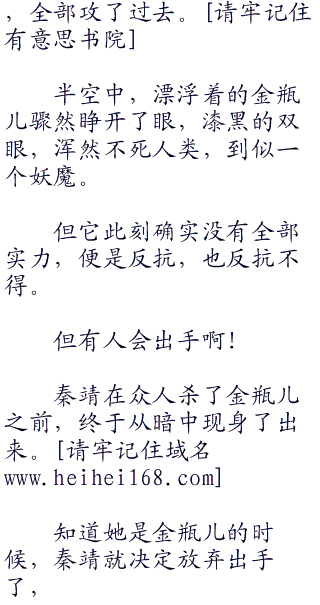 ，全部攻了过去。[请牢记住
有意思书院]
半空中，漂浮着的金瓶
儿骤然睁开了眼，漆黑的双
眼，浑然不死人类，到似一
个妖魔。
但它此刻确实没有全部
实力，便是反抗，也反抗不
得。
但有人会出手啊！
秦靖在众人杀了金瓶儿
之前，终于从暗中现身了出
来。[请牢记住域名
www.heihei168.com]
知道她是金瓶儿的时
候，秦靖就决定放弃出手
了，